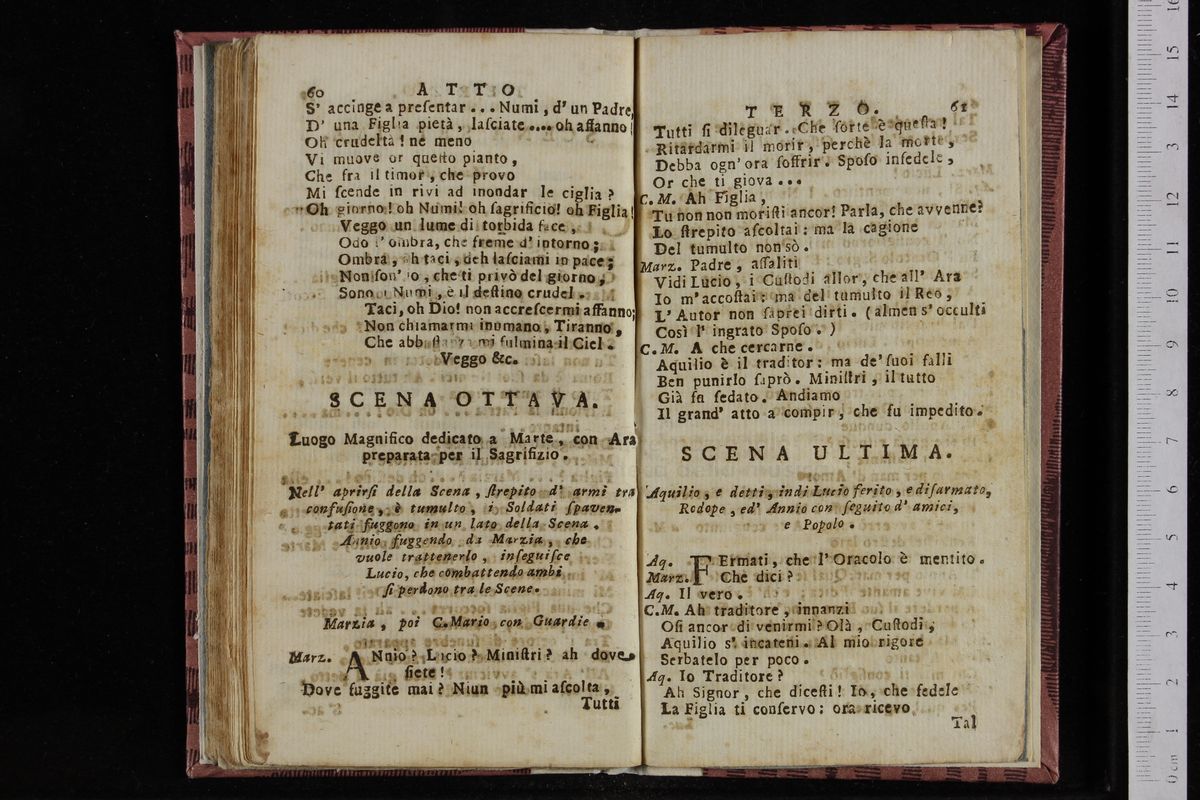 60 ATTO
S' accinge a preſentar ... Numi, d' un Padre,
D' una Figlia pietà, laſciate .... oh affanno!
Oh crudeltà! nè meno
Vi muove or queſto pianto,
Che fra il timor, che provo
Mi ſcende in rivi ad inondar le ciglia?
Oh giorno! oh Numi! oh ſagrificio! oh Figlia!
Veggo un lume di torbida face,
Odo l' ombra, che freme d' intorno;
Ombra, oh taci, deh laſciami in pace;
Non ſon' io, che ti privò del giorno;
Sono i Numi, è il deſtino crudel.
Taci, oh Dio! non accreſcermi affanno;
Non chiamarmi inumano, Tiranno,
Che abbaſtanza mi fulmina il Ciel.
Veggo &c.
SCENA OTTAVA.
Luogo Magnifico dedicato a Marte, con Ara
preparata per il Sagrifizio.
Nell' aprirſi della Scena, ſtrepito d' armi tra
confuſione, è tumulto, i Soldati ſpaven-
tati fuggono in un lato della Scena.
Annio fuggendo da Marzia, che
vuole trattenerlo, inſeguiſce
Lucio, che combattendo ambi
ſi perdono tra le Scene.
Marzia, poi C. Mario con Guardie.
Marz. ANnio? Lucio? Miniſtri? ah dove
ſiete!
Dove fuggite mai? Niun più mi aſcolta,
Tutti
TERZO. 61
Tutti ſi dileguar. Che ſorte è queſta!
Ritardarmi il morir, perchè la morte,
Debba ogn' ora ſoffrir. Spoſo infedele,
Or che ti giova ...
C. M. Ah Figlia,
Tu non non moriſti ancor! Parla, che avvenne?
Lo ſtrepito aſcoltai: ma la cagione
Del tumulto non sò.
Marz. Padre, aſſaliti
Vidi Lucio, i Cuſtodi allor, che all' Ara
Io m' accoſtai: ma del tumulto il Reo,
L' Autor non ſaprei dirti. (almen s' occulti
Così l' ingrato Spoſo.)
C. M. A che cercarne.
Aquilio è il traditor: ma de' ſuoi falli
Ben punirlo ſaprò. Miniſtri, il tutto
Già fu ſedato. Andiamo
Il grand' atto a compir, che fu impedito.
SCENA ULTIMA.
Aquilio, e detti, indi Lucio ferito, e diſarmato,
Rodope, ed' Annio con ſeguito d' amici,
e Popolo.
Aq. FErmati, che l' Oracolo è mentito.
Marz. Che dici?
Aq. Il vero.
C. M. Ah traditore, innanzi
Oſi ancor di venirmi? Olà, Cuſtodi,
Aquilio s' incateni. Al mio rigore
Serbatelo per poco.
Aq. Io Traditore?
Ah Signor, che diceſti! Io, che fedele
La Figlia ti conſervo: ora ricevo
Tal
0 cm 1 2 3 4 5 6 7 8 9 10 11 12 13 14 15 16